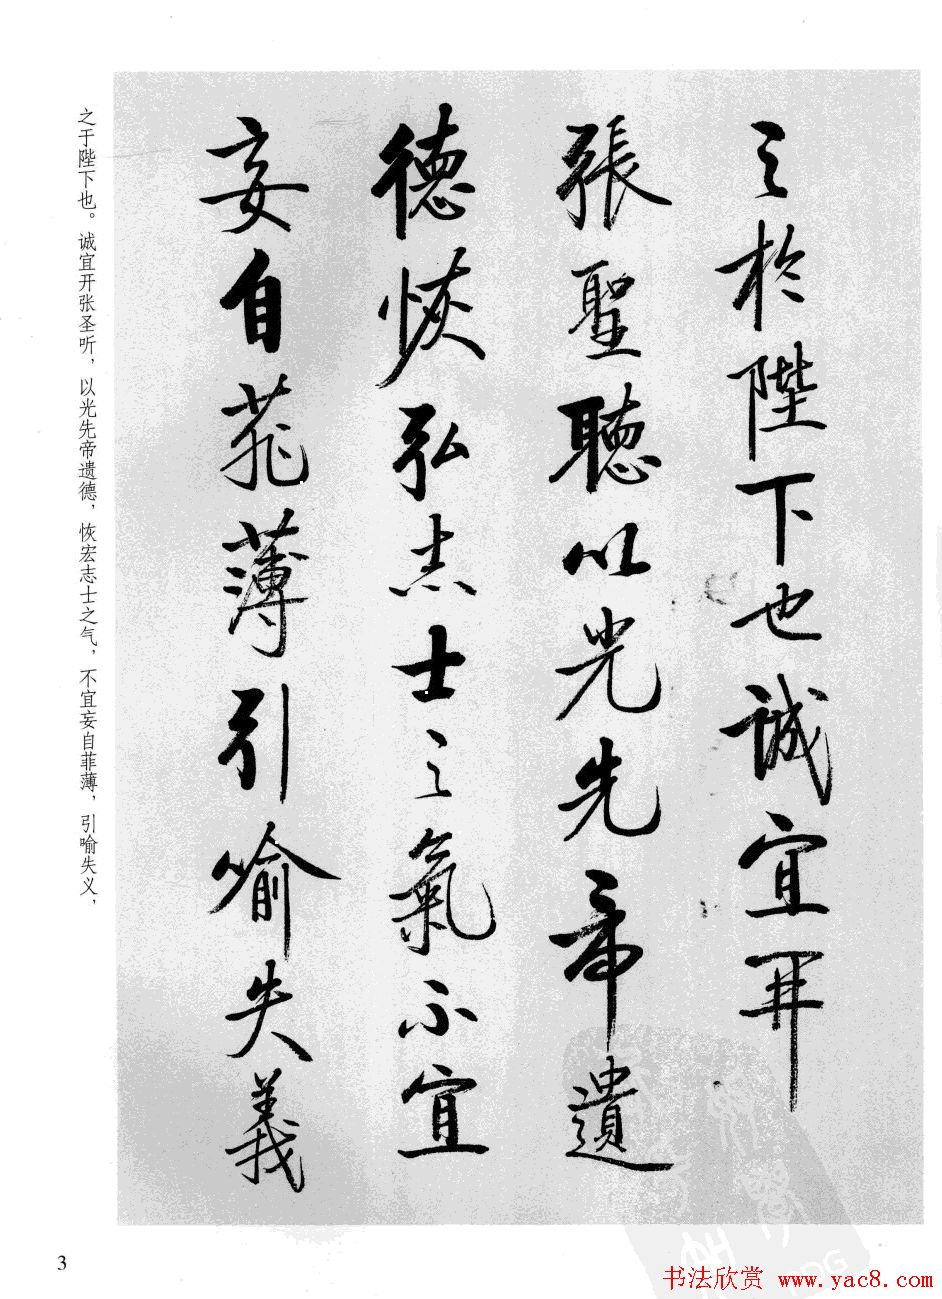 之於陛下也誠宜开
張聖聽以光先帝遺
德恢弘志士之氣不宜
妄自菲薄引喻失義
之于陛下也。诚宜开张圣听，以光先帝遗德，恢宏志士之气，不宜妄自菲薄，引喻失义，
3
书法欣赏 www.yac8.com